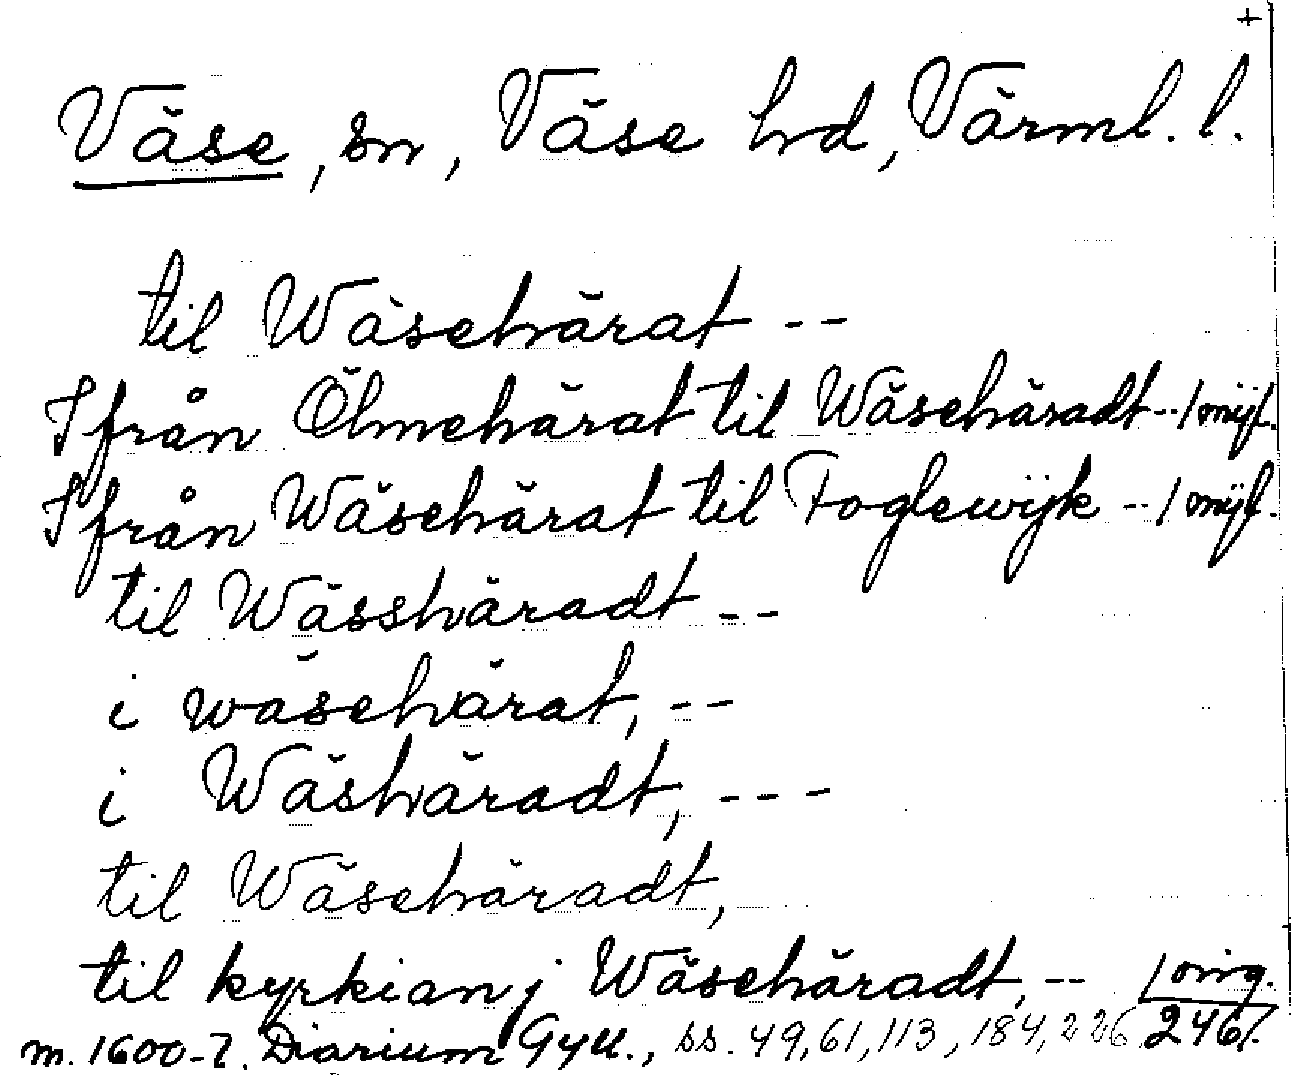 +
Väse, sn, Väse hd, Värml. l.
til Wäsehärat --
Ifrån Ölmehärat til Wäsehäradt -- 1 mijl.
Ifrån Wäsehärat til Foglewijk -- 1 mijl.
til Wässhäradt --
i wäsehärat, --
i Wäshäradt, ---
til Wäsehäradt,
til kyrkian j Wäsehäradt, --
m. 1600-t. Diarium Gyll., ss. 49, 61, 113, 184, 226, 246.